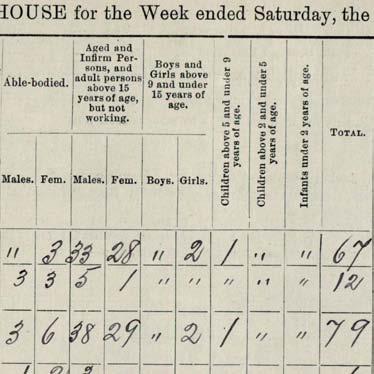 HOUSE for the Week ended Saturday, the
Able-bodied.
Aged and
Infirm Per-
sons, and
adult persons
above 15
years of age,
but not
working.
Boys and
Girls above
9 and under
15 years of
age.
Children above 5 and under 9
years of age.
Children above 2 and under 5
years of age.
Infants under 2 years of age.
TOTAL.
Males. Fem. Males. Fem. Boys. Girls.
" 3 33 28 " 2 1 " " 67
3 3 5 1 " " " " " 12
3 6 38 29 " 2 1 " " 79